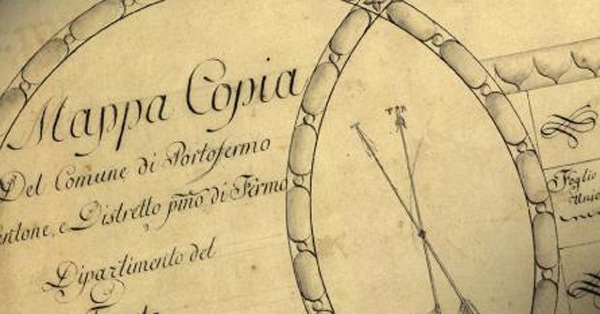 Mappa Copia
Del Comune di Portofermo
Cantone, e Distretto pmo. di Fermo
Dipartimento del
Tronto
TRA
Foglio
Unico